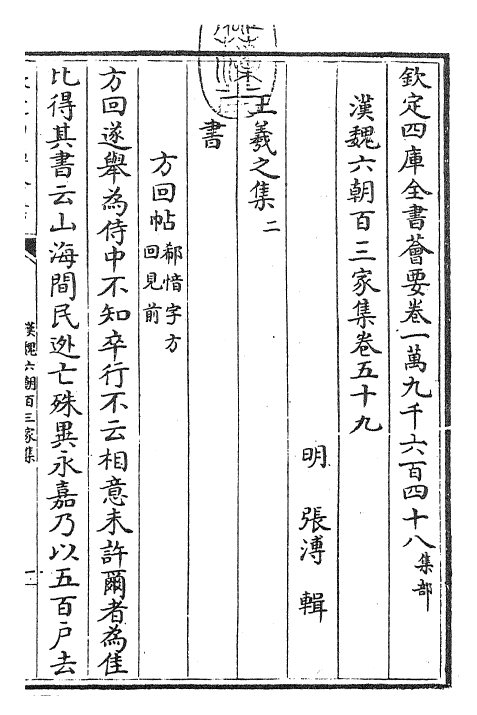 欽定四庫全書薈要卷一萬九千六百四十八集部
漢魏六朝百三家集卷五十九
明 張溥 輯
王羲之集二
書
方回帖郗愔字方回見前
方回遂舉為侍中不知卒行不云相意未許爾者為佳
比得其書云山海間民逃亡殊異永嘉乃以五百戶去
漢魏六朝百三家集
一